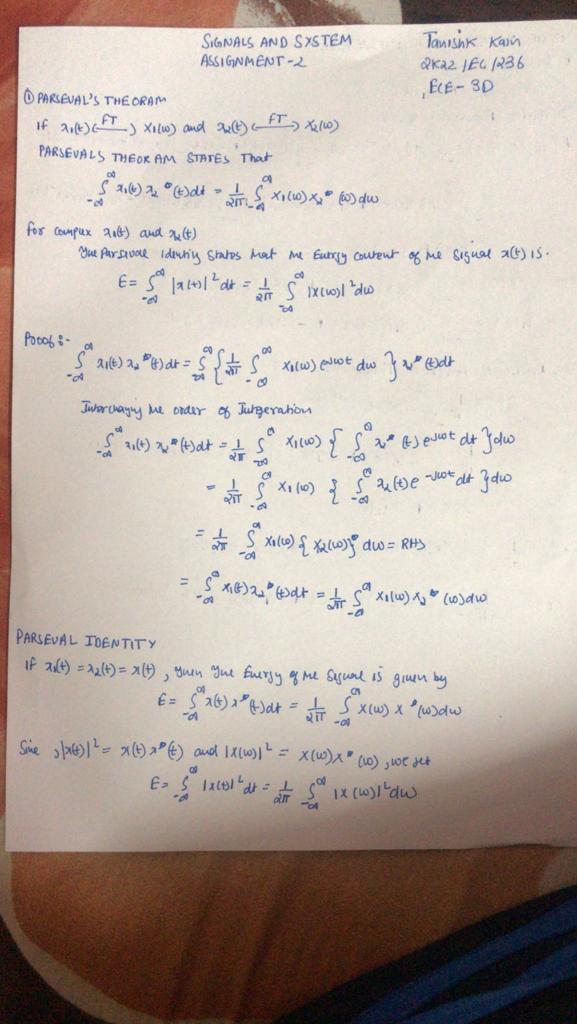 SIGNALS AND SYSTEM
ASSIGNMENT-2
Tanishk Kain
2K22/EC/236
ECE-3D
① PARSEVAL'S THEORAM
If x₁(t) ←FT→ X₁(ω) and x₂(t) ←FT→ X₂(ω)
PARSEVALS THEORAM STATES That
∫_{-∞}^{∞} x₁(t) x₂*(t) dt = 1/2π ∫_{-∞}^{∞} X₁(ω) X₂*(ω) dω
for complex x₁(t) and x₂(t)
The Parsivale Identity States that the Energy content of the Signal x(t) is.
E = ∫_{-∞}^{∞} |x(t)|² dt = 1/2π ∫_{-∞}^{∞} |X(ω)|² dω
Proof:-
∫_{-∞}^{∞} x₁(t) x₂*(t) dt = ∫_{-∞}^{∞} { 1/2π ∫_{-∞}^{∞} X₁(ω) e^{jωt} dω } x₂*(t) dt
Interchanging the order of Intgeration
∫_{-∞}^{∞} x₁(t) x₂*(t) dt = 1/2π ∫_{-∞}^{∞} X₁(ω) { ∫_{-∞}^{∞} x₂*(t) e^{jωt} dt } dω
= 1/2π ∫_{-∞}^{∞} X₁(ω) { ∫_{-∞}^{∞} x₂(t) e^{-jωt} dt } dω
= 1/2π ∫_{-∞}^{∞} X₁(ω) { X₂(ω) }* dω = RHS
= ∫_{-∞}^{∞} x₁(t) x₂*(t) dt = 1/2π ∫_{-∞}^{∞} X₁(ω) X₂*(ω) dω
PARSEVAL IDENTITY
If x₁(t) = x₂(t) = x(t), then the Energy of the Signal is given by
E = ∫_{-∞}^{∞} x(t) x*(t) dt = 1/2π ∫_{-∞}^{∞} X(ω) X*(ω) dω
Sine, |x(t)|² = x(t) x*(t) and |X(ω)|² = X(ω) X*(ω), we get
E = ∫_{-∞}^{∞} |x(t)|² dt = 1/2π ∫_{-∞}^{∞} |X(ω)|² dω